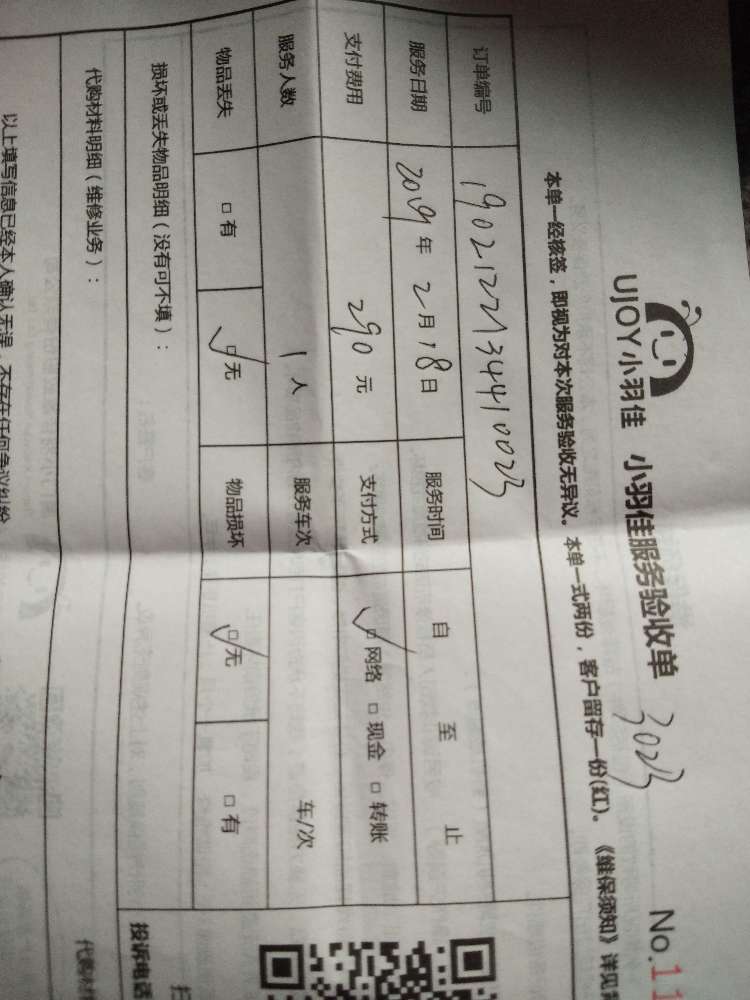 UJOY小羽佳 小羽佳服务验收单 3023 No.11
本单一经核签，即视为对本次服务验收无异议。本单一式两份，客户留存一份(红)。《维保须知》详见
订单编号 1902122134410023
服务日期 2019年2月18日 服务时间 自 至 止
支付费用 290元 支付方式 ✓□网络 □现金 □转账
服务人数 1人 服务车次 车/次
物品丢失 □有 ✓□无 物品损坏 ✓□无 □有
损坏或丢失物品明细（没有可不填）：
代购材料明细（维修业务）： 投诉电话
以上填写信息已经本人确认无误，不存在任何争议纠纷 代购材